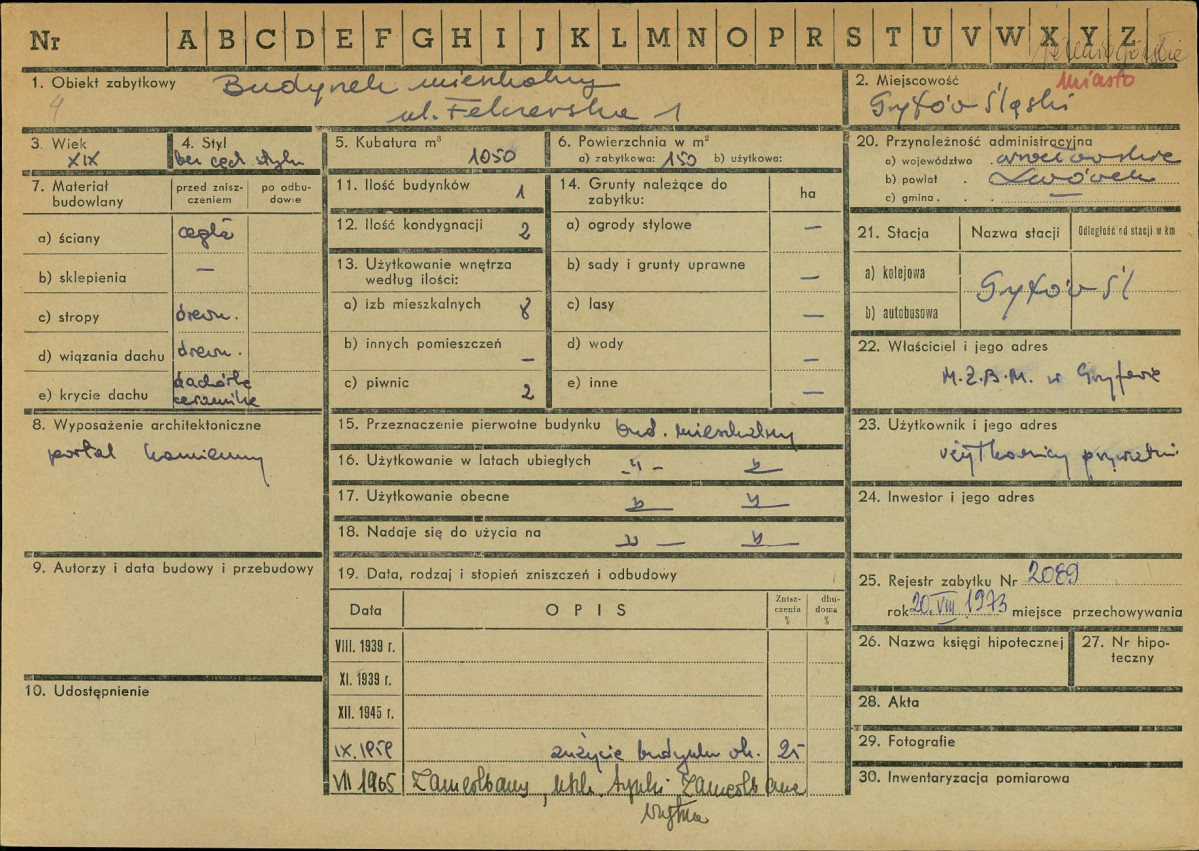 Nr A B C D E F G H I J K L M N O P R S T U V W X Y Z
1. Obiekt zabytkowy Budynek mieszkalny
ul. 1
2. Miejscowość miasto
Gryfów Śląski
3. Wiek
XIX
4. Styl
bez cech stylu
5. Kubatura m³ 1050
6. Powierzchnia w m²
a) zabytkowa: 150 b) użytkowa:
20. Przynależność administracyjna
a) województwo wrocławskie
b) powiat Lwówek
c) gmina —
7. Materiał budowlany
przed znisz-
czeniem
po odbu-
dowie
a) ściany cegła
b) sklepienia —
c) stropy drewn.
d) wiązania dachu drewn.
e) krycie dachu dachówka
ceramika
11. Ilość budynków 1
12. Ilość kondygnacji 2
13. Użytkowanie wnętrza
według ilości:
a) izb mieszkalnych 8
b) innych pomieszczeń —
c) piwnic 2
14. Grunty należące do
zabytku:
ha
a) ogrody stylowe —
b) sady i grunty uprawne —
c) lasy —
d) wody —
e) inne —
21. Stacja Nazwa stacji Odległość od stacji w km
a) kolejowa
Gryfów Śl
b) autobusowa
22. Właściciel i jego adres
M.Z.B.M. w Gryfowie
8. Wyposażenie architektoniczne
portal kamienny
15. Przeznaczenie pierwotne budynku bud. mieszkalny
16. Użytkowanie w latach ubiegłych -„- „
17. Użytkowanie obecne „ „
18. Nadaje się do użycia na „ — „
23. Użytkownik i jego adres
użytkownicy prywatni
24. Inwestor i jego adres
9. Autorzy i data budowy i przebudowy
10. Udostępnienie
19. Data, rodzaj i stopień zniszczeń i odbudowy
Data OPIS Znisz-
czenia
%
dbu-
dowa
%
VIII. 1939 r.
XI. 1939 r.
XII. 1945 r.
IX.1959 zużycie budynku ok. 25
VII 1965 Zamieszkany,
25. Rejestr zabytku Nr 2089
rok 20.VIII 1973 miejsce przechowywania
26. Nazwa księgi hipotecznej
27. Nr hipo-
teczny
28. Akta
29. Fotografie
30. Inwentaryzacja pomiarowa